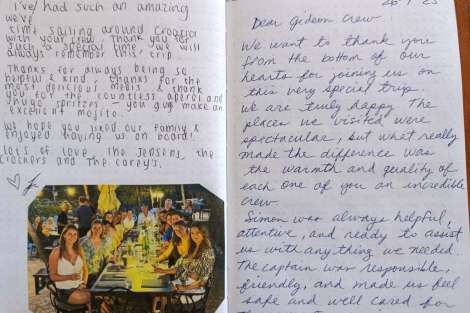 I've had such an amazing
time sailing around Croatia
with your crew. Thank you for
such a special time, we will
always remember this trip.
Thanks for always being so
helpful & kind, thanks for the
most delicious meals & thank
you for the countless aperol and
hugo spritzers - you give make an
excellent mojito.
we hope you liked our family &
enjoyed having us on board!
lots of love, The Jensens, the
Clochers and the Carey's.
Dear Gideon Crew.
We want to thank you
from the bottom of our
hearts for joining us on
this very special trip.
we are truly happy. The
places we visited were
spectacular, but what really
made the difference was
the warmth and quality of
each one of you an incredible
crew.
Simon was always helpful,
attentive, and ready to assist
us with anything we needed.
The captain was responsible,
friendly, and made us feel
safe and well cared for